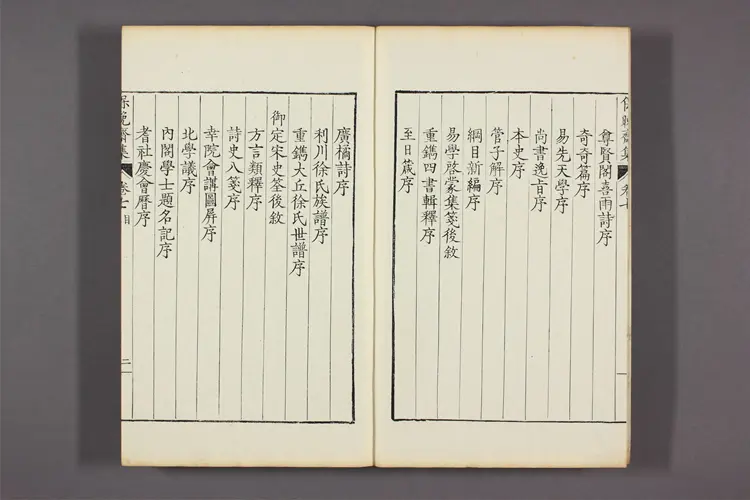 保晚齋集 卷七
尊賢閣喜雨詩序
奇奇篇序
易先天學序
尚書逸旨序
本史序
管子解序
綱目新編序
易學啓蒙集箋後敘
重鐫四書輯釋序
至日箴序
廣橘詩序
利川徐氏族譜序
重鐫大丘徐氏世譜序
御定宋史筌後敘
方言類釋序
詩史八箋序
幸院會講圖屛序
北學議序
內閣學士題名記序
耆社慶會曆序
保晚齋集 卷七目 二